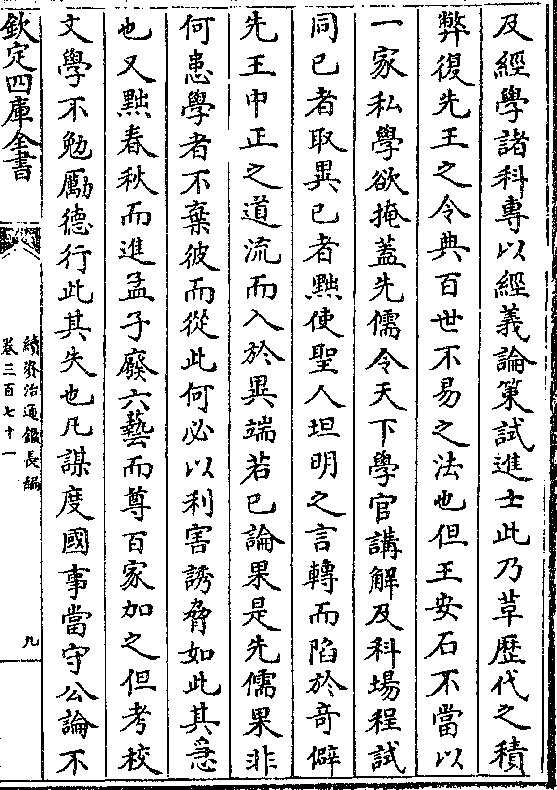 及經學諸科專以經義論策試進士此乃革歴代之積
弊復先王之令典百世不易之法也但王安石不當以
一家私學欲掩蓋先儒令天下學官講解及科場程試
同已者取異已者黜使聖人坦明之言轉而陷於奇僻
先王中正之道流而入於異端若已論果是先儒果非
何患學者不棄彼而從此何必以利害誘脅如此其急
也又黜春秋而進孟子廢六藝而尊百家加之但考校
文學不勉勵德行此其失也凡謀度國事當守公論不
欽定四庫全書
續資治通鑑長編
卷三百七十一
九